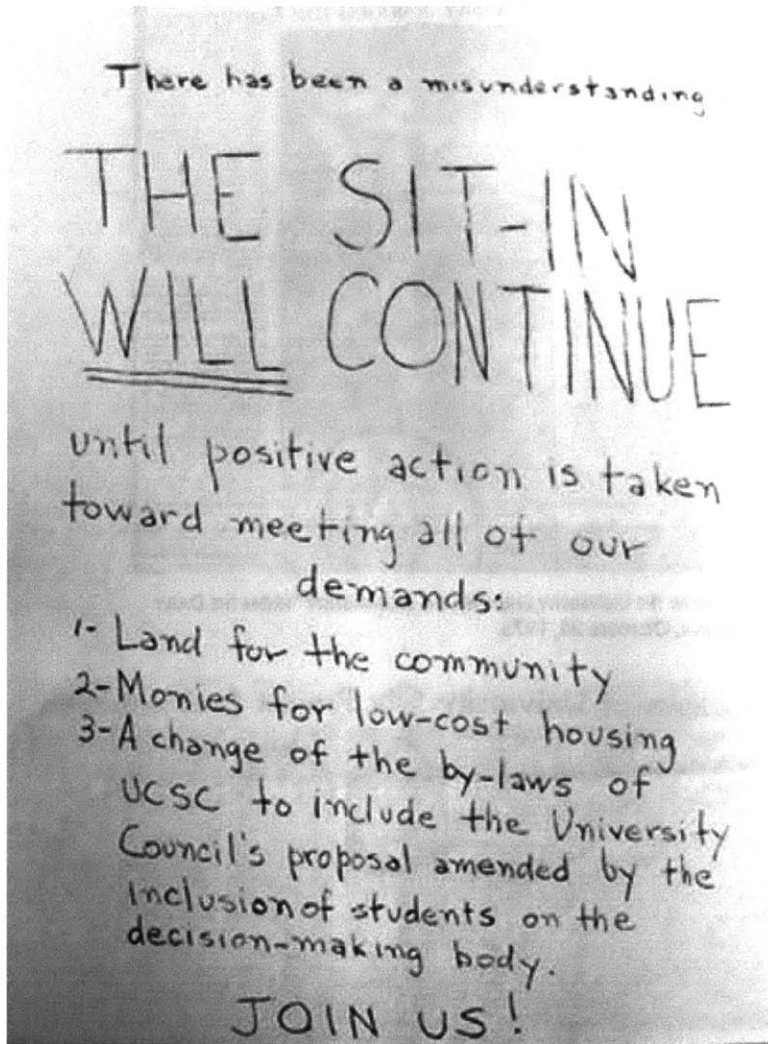 There has been a misunderstanding
THE SIT-IN
WILL CONTINUE
until positive action is taken
toward meeting all of our
demands:
1- Land for the community
2- Monies for low-cost housing
3- A change of the by-laws of
UCSC to include the University
Council's proposal amended by the
inclusion of students on the
decision-making body.
JOIN US!